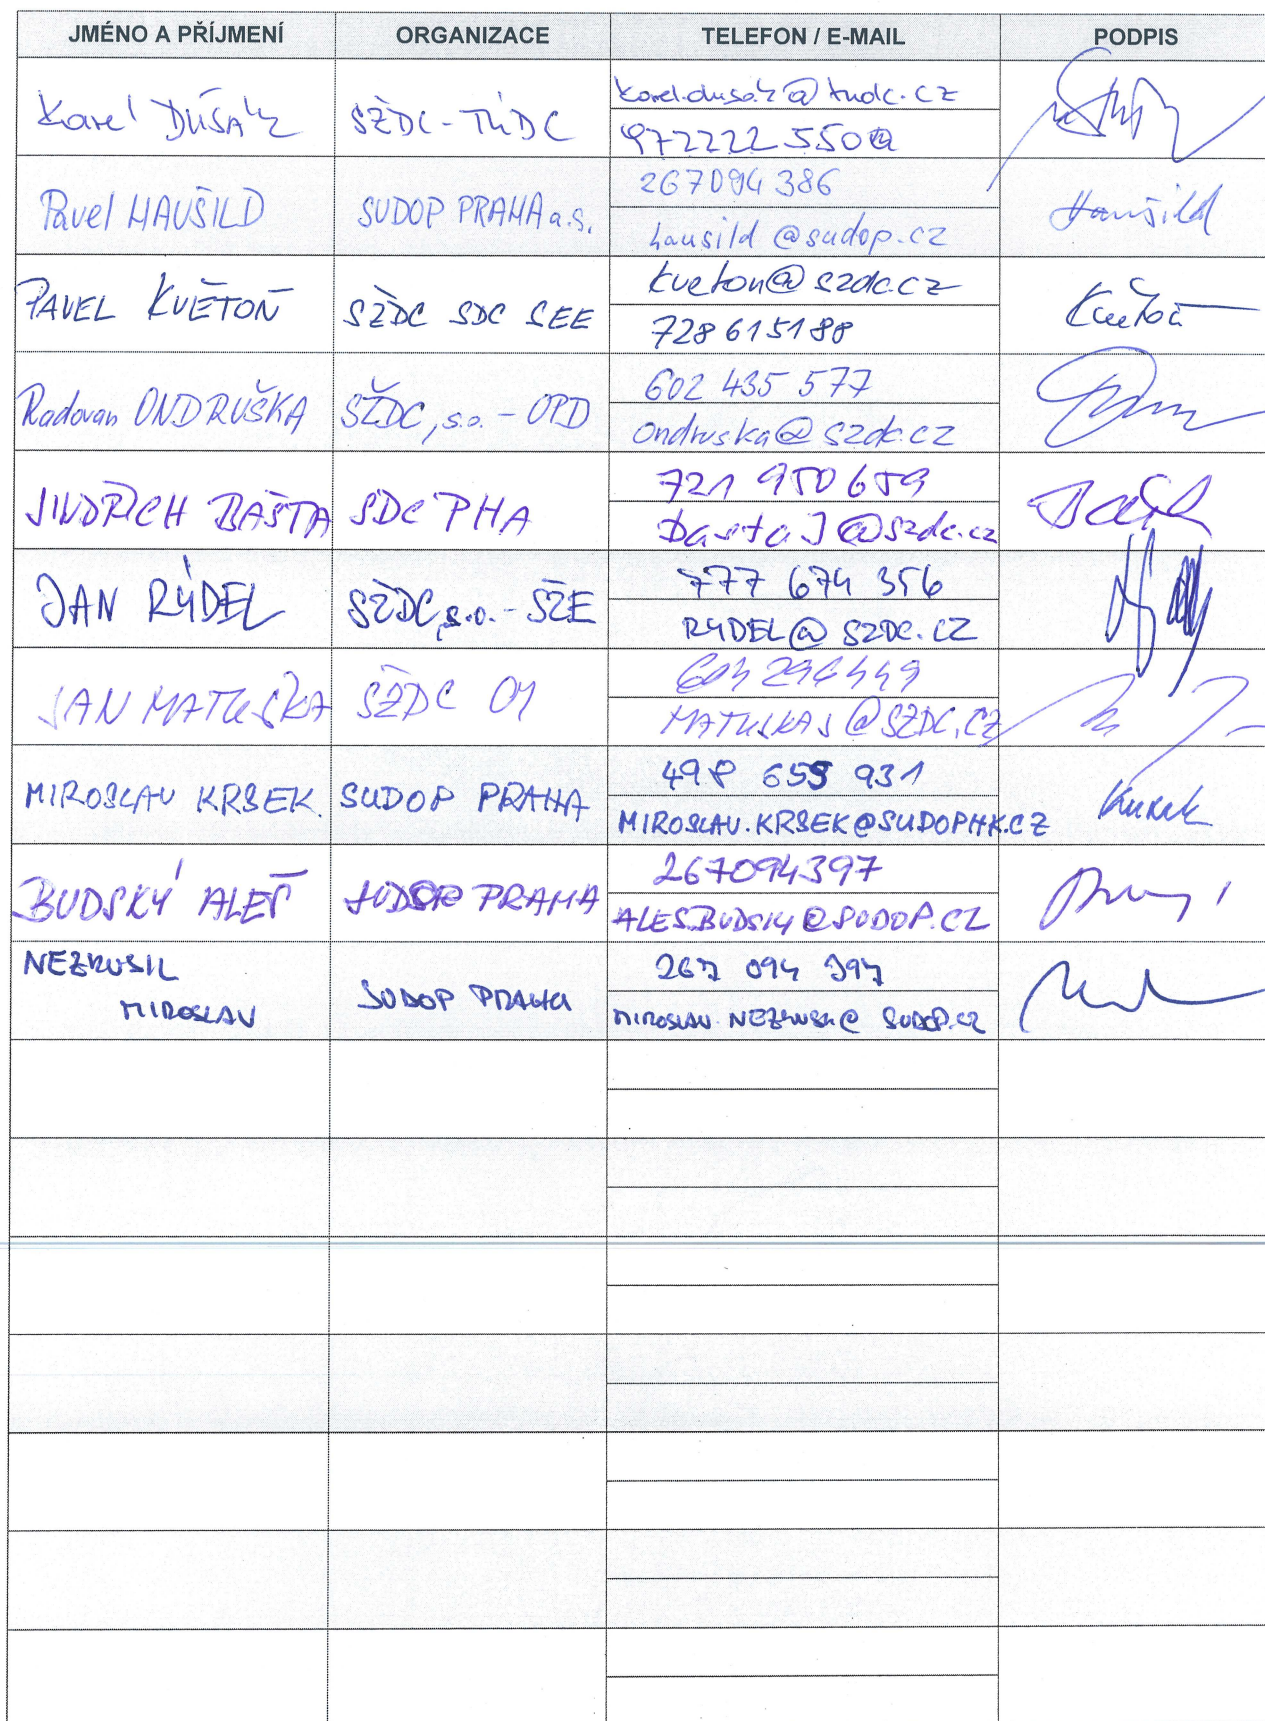 JMÉNO A PŘÍJMENÍ ORGANIZACE TELEFON / E-MAIL PODPIS
Karel Dušák SŽDC-TÚDC karel.dusak@tudc.cz
972222550
Pavel HAUŠILD SUDOP PRAHA a.s. 267094386 Haušild
hausild@sudop.cz
PAVEL KVĚTOŇ SŽDC SDC SEE kveton@szdc.cz Květoň
728615188
Radovan ONDRUŠKA SŽDC, s.o. - OPD 602 435 577
ondruska@szdc.cz
JINDŘICH BAŠTA SDC PHA 721 950 659 Bašta
BastaJ@szdc.cz
JAN RÝDEL SŽDC, s.o. - SŽE 777 674 356
RYDEL@SZDC.CZ
JAN MATUŠKA SŽDC
MATUSKAJ@SZDC.CZ
MIROSLAV KRSEK. SUDOP PRAHA 498 655 931 Krsek
MIROSLAV.KRSEK@SUDOPHK.CZ
BUDSKÝ ALEŠ SUDOP PRAHA 267094397
ALES.BUDSKY@SUDOP.CZ
NEZKUSIL SUDOP PRAHA 267 094 397
MIROSLAV MIROSLAV.NEZKUSIL@SUDOP.CZ